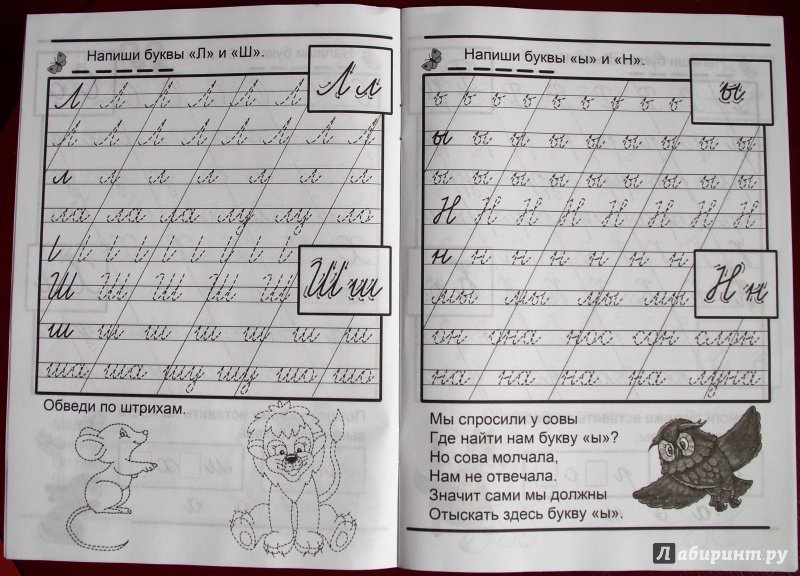 Напиши буквы «Л» и «Ш».
Л Л Л Л Л Л
Лл
Л Л Л Л Л Л Л Л
л л л л л л л
ла ла ла лу лу ло
Ш Ш Ш Ш Ш
Шш
ш ш ш ш ш ш ш
ша ша шу шу шо шо
Обведи по штрихам.
Напиши буквы «ы» и «Н».
ы
ы ы ы ы ы ы ы ы ы
ы ы ы ы ы ы ы ы ы
Н Н Н Н Н Н Н Н
н н н н н н н
Нн
мы мы мы мы
он она нос сон слон
на на на на луна
Мы спросили у совы
Где найти нам букву «ы»?
Но сова молчала,
Нам не отвечала.
Значит сами мы должны
Отыскать здесь букву «ы».
Лабиринт.ру